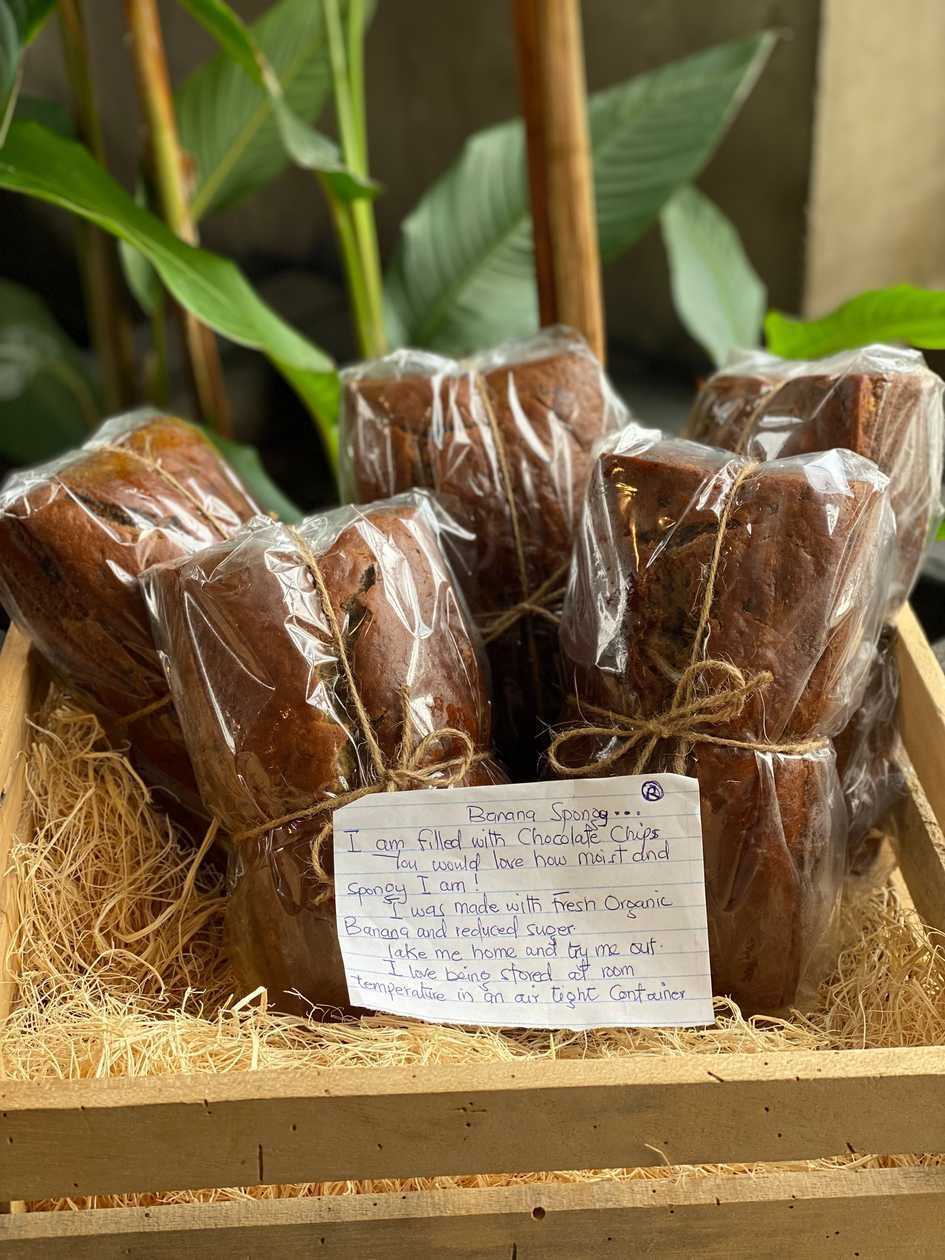 R
Banana Spongy...
I am filled with Chocolate Chips
You would love how moist and
spongy I am!
I was made with Fresh Organic
Banana and reduced suger.
Take me home and try me out.
I love being stored at room
temperature in an air tight Container